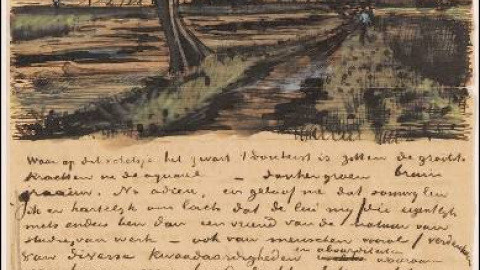 Waar op dit schetsje het zwart 't donkerst is zitten de grootste
krachten in de aquarel – donkergroen bruin
graauw. Nu adieu, en geloof me dat
ik er hartelijk om lach dat de lui mij (die eigentlijk
niets anders ben dan een vriend van de natuur van
studie van werk – ook van menschen vooral) verdenken
van diverse kwaadaardigheden en absurditeiten waarvan